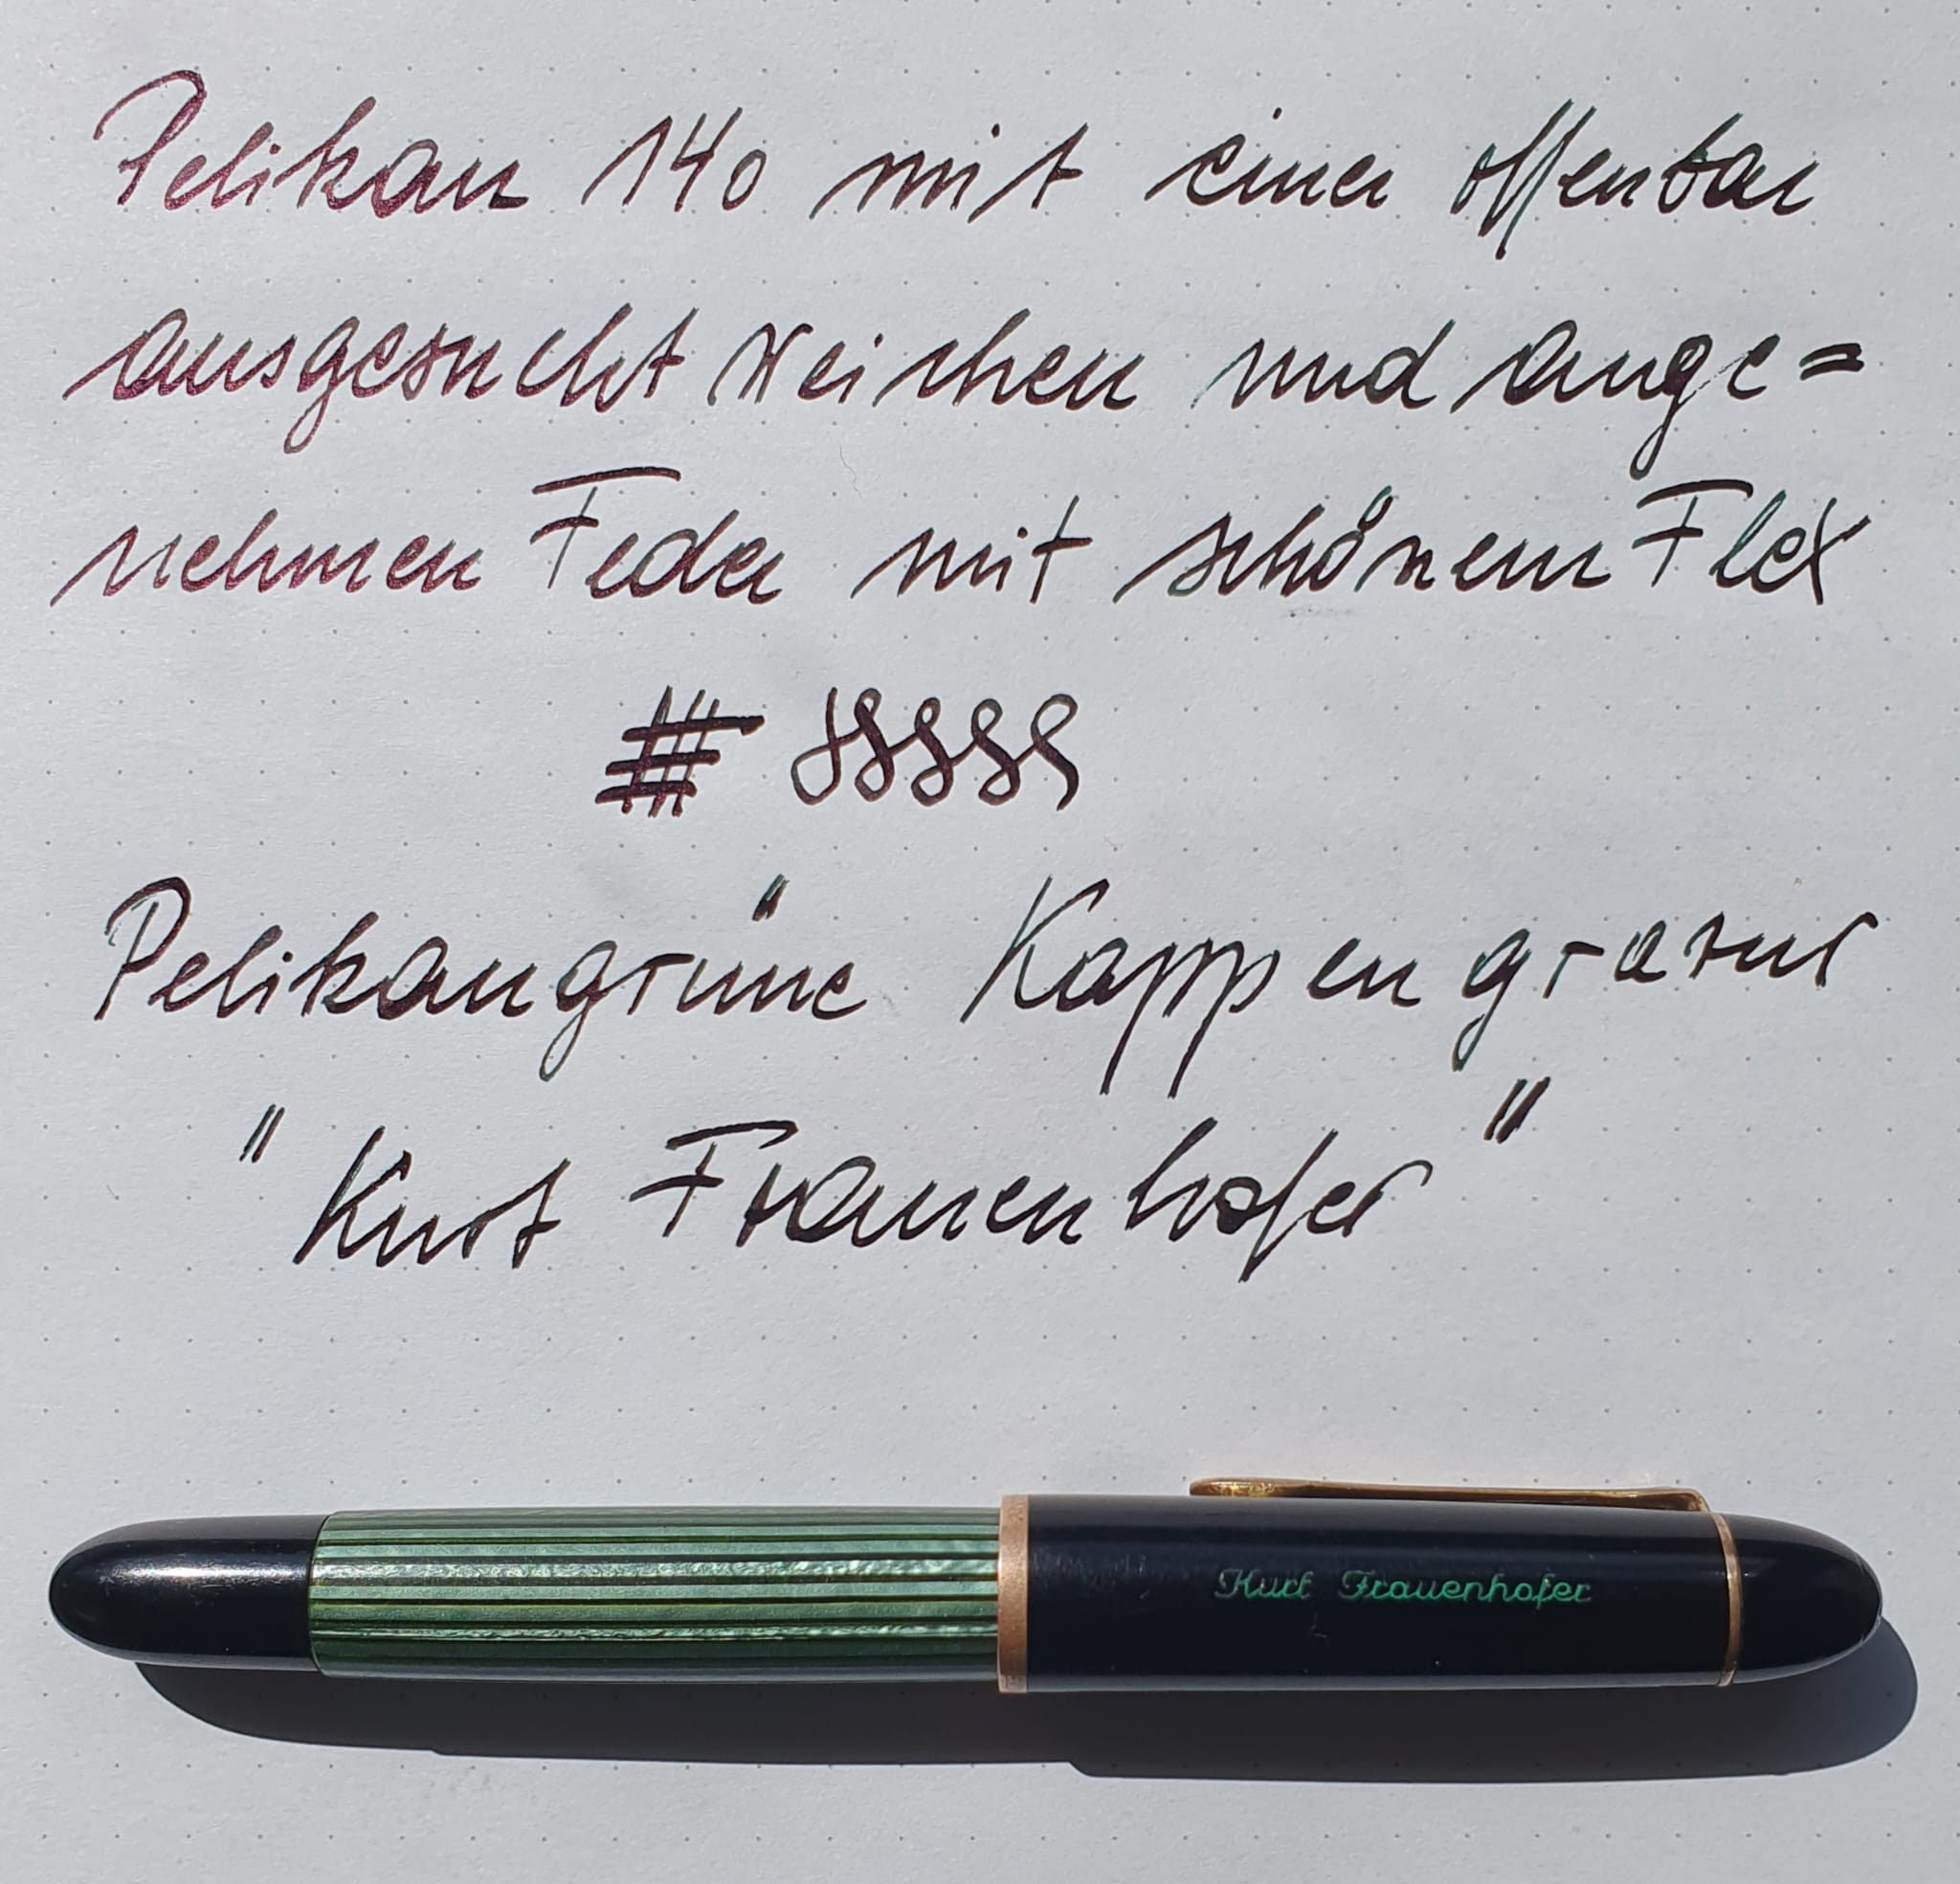 Pelikan 140 mit einer offenbar
ausgesucht weichen und ange=
nehmen Feder mit schönem Flex
Pelikangrüne Kappengravur
"Kurt Frauenhofer"
Kurt Frauenhofer